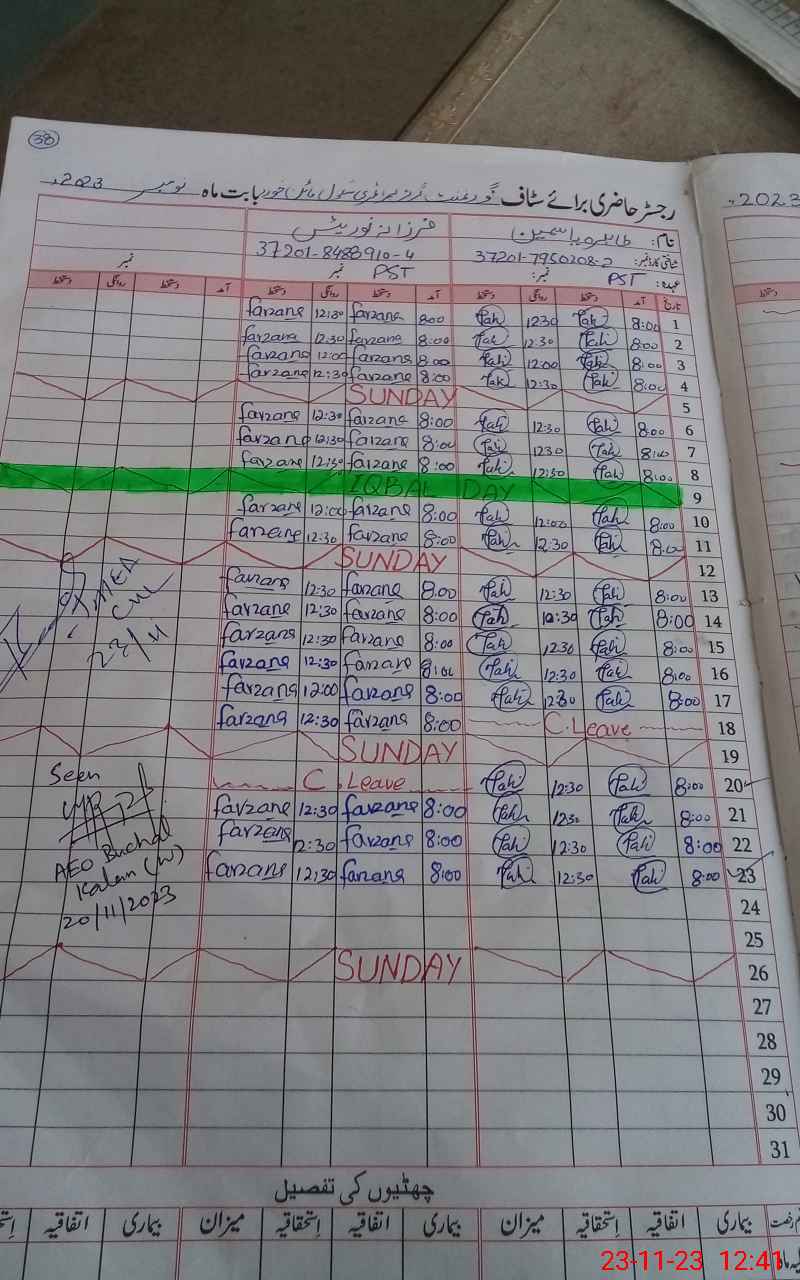 38
رجسٹر حاضری برائے سٹاف گورنمنٹ گرلز پرائمری سکول خورد بابت ماہ نومبر 2023ء
2023
نام: طاہرہ یاسمین فرزانہ نورین
شناختی کارڈ نمبر: 37201-7950208-2 37201-8488910-4
عہدہ: PST نمبر: PST نمبر نمبر
تاریخ آمد دستخط روانگی دستخط آمد دستخط روانگی دستخط آمد دستخط روانگی دستخط
1 8:00 Tah 1230 Tah 800 farzana 12:30 farzana
2 8:00 Tah 12:30 Tah 8:00 farzana 12:30 farzana
3 8:00 Tah 12:00 Tah 8:00 farzana 12:00 farzana
4 8:00 Tah 12:30 Tah 8:00 farzana 12:30 farzana
5 SUNDAY
6 8:00 Tah 12:30 Tah 8:00 farzana 12:30 farzana
7 8:00 Tah 1230 Tah 8:00 farzana 12:30 farzana
8 8:00 Tah 12:30 Tah 8:00 farzana 12:30 farzana
9 IQBAL DAY
10 8:00 Tah 12:00 Tah 8:00 farzana 12:00 farzana
11 8:00 Tah 12:30 Tah 8:00 farzana 12:30 farzana
12 SUNDAY
13 8:00 Tah 12:30 Tah 8:00 farzana 12:30 farzana
14 8:00 Tah 12:30 Tah 8:00 farzana 12:30 farzana
15 8:00 Tah 1230 Tah 8:00 farzana 12:30 farzana
16 8:00 Tah 12:30 Tah 8:00 farzana 12:30 farzana
17 8:00 Tah 12:30 Tah 8:00 farzana 12:00 farzana
18 C.Leave 8:00 farzana 12:30 farzana
19 SUNDAY
20 8:00 Tah 12:30 Tah C.Leave
21 8:00 Tah 1230 Tah 8:00 farzana 12:30 farzana
22 8:00 Tah 12:30 Tah 8:00 farzana 12:30 farzana
23 8:00 Tah 12:30 Tah 8:00 farzana 12:30 farzana
24
25
26 SUNDAY
27
28
29
30
31
MEA
CKL
22/11
Seen
AEO Buchal
Kalan (W)
20/11/2023
چھٹیوں کی تفصیل
بیماری اتفاقیہ اِستحقاقیہ میزان بیماری اتفاقیہ اِستحقاقیہ میزان بیماری اتفاقیہ
23-11-23 12:41